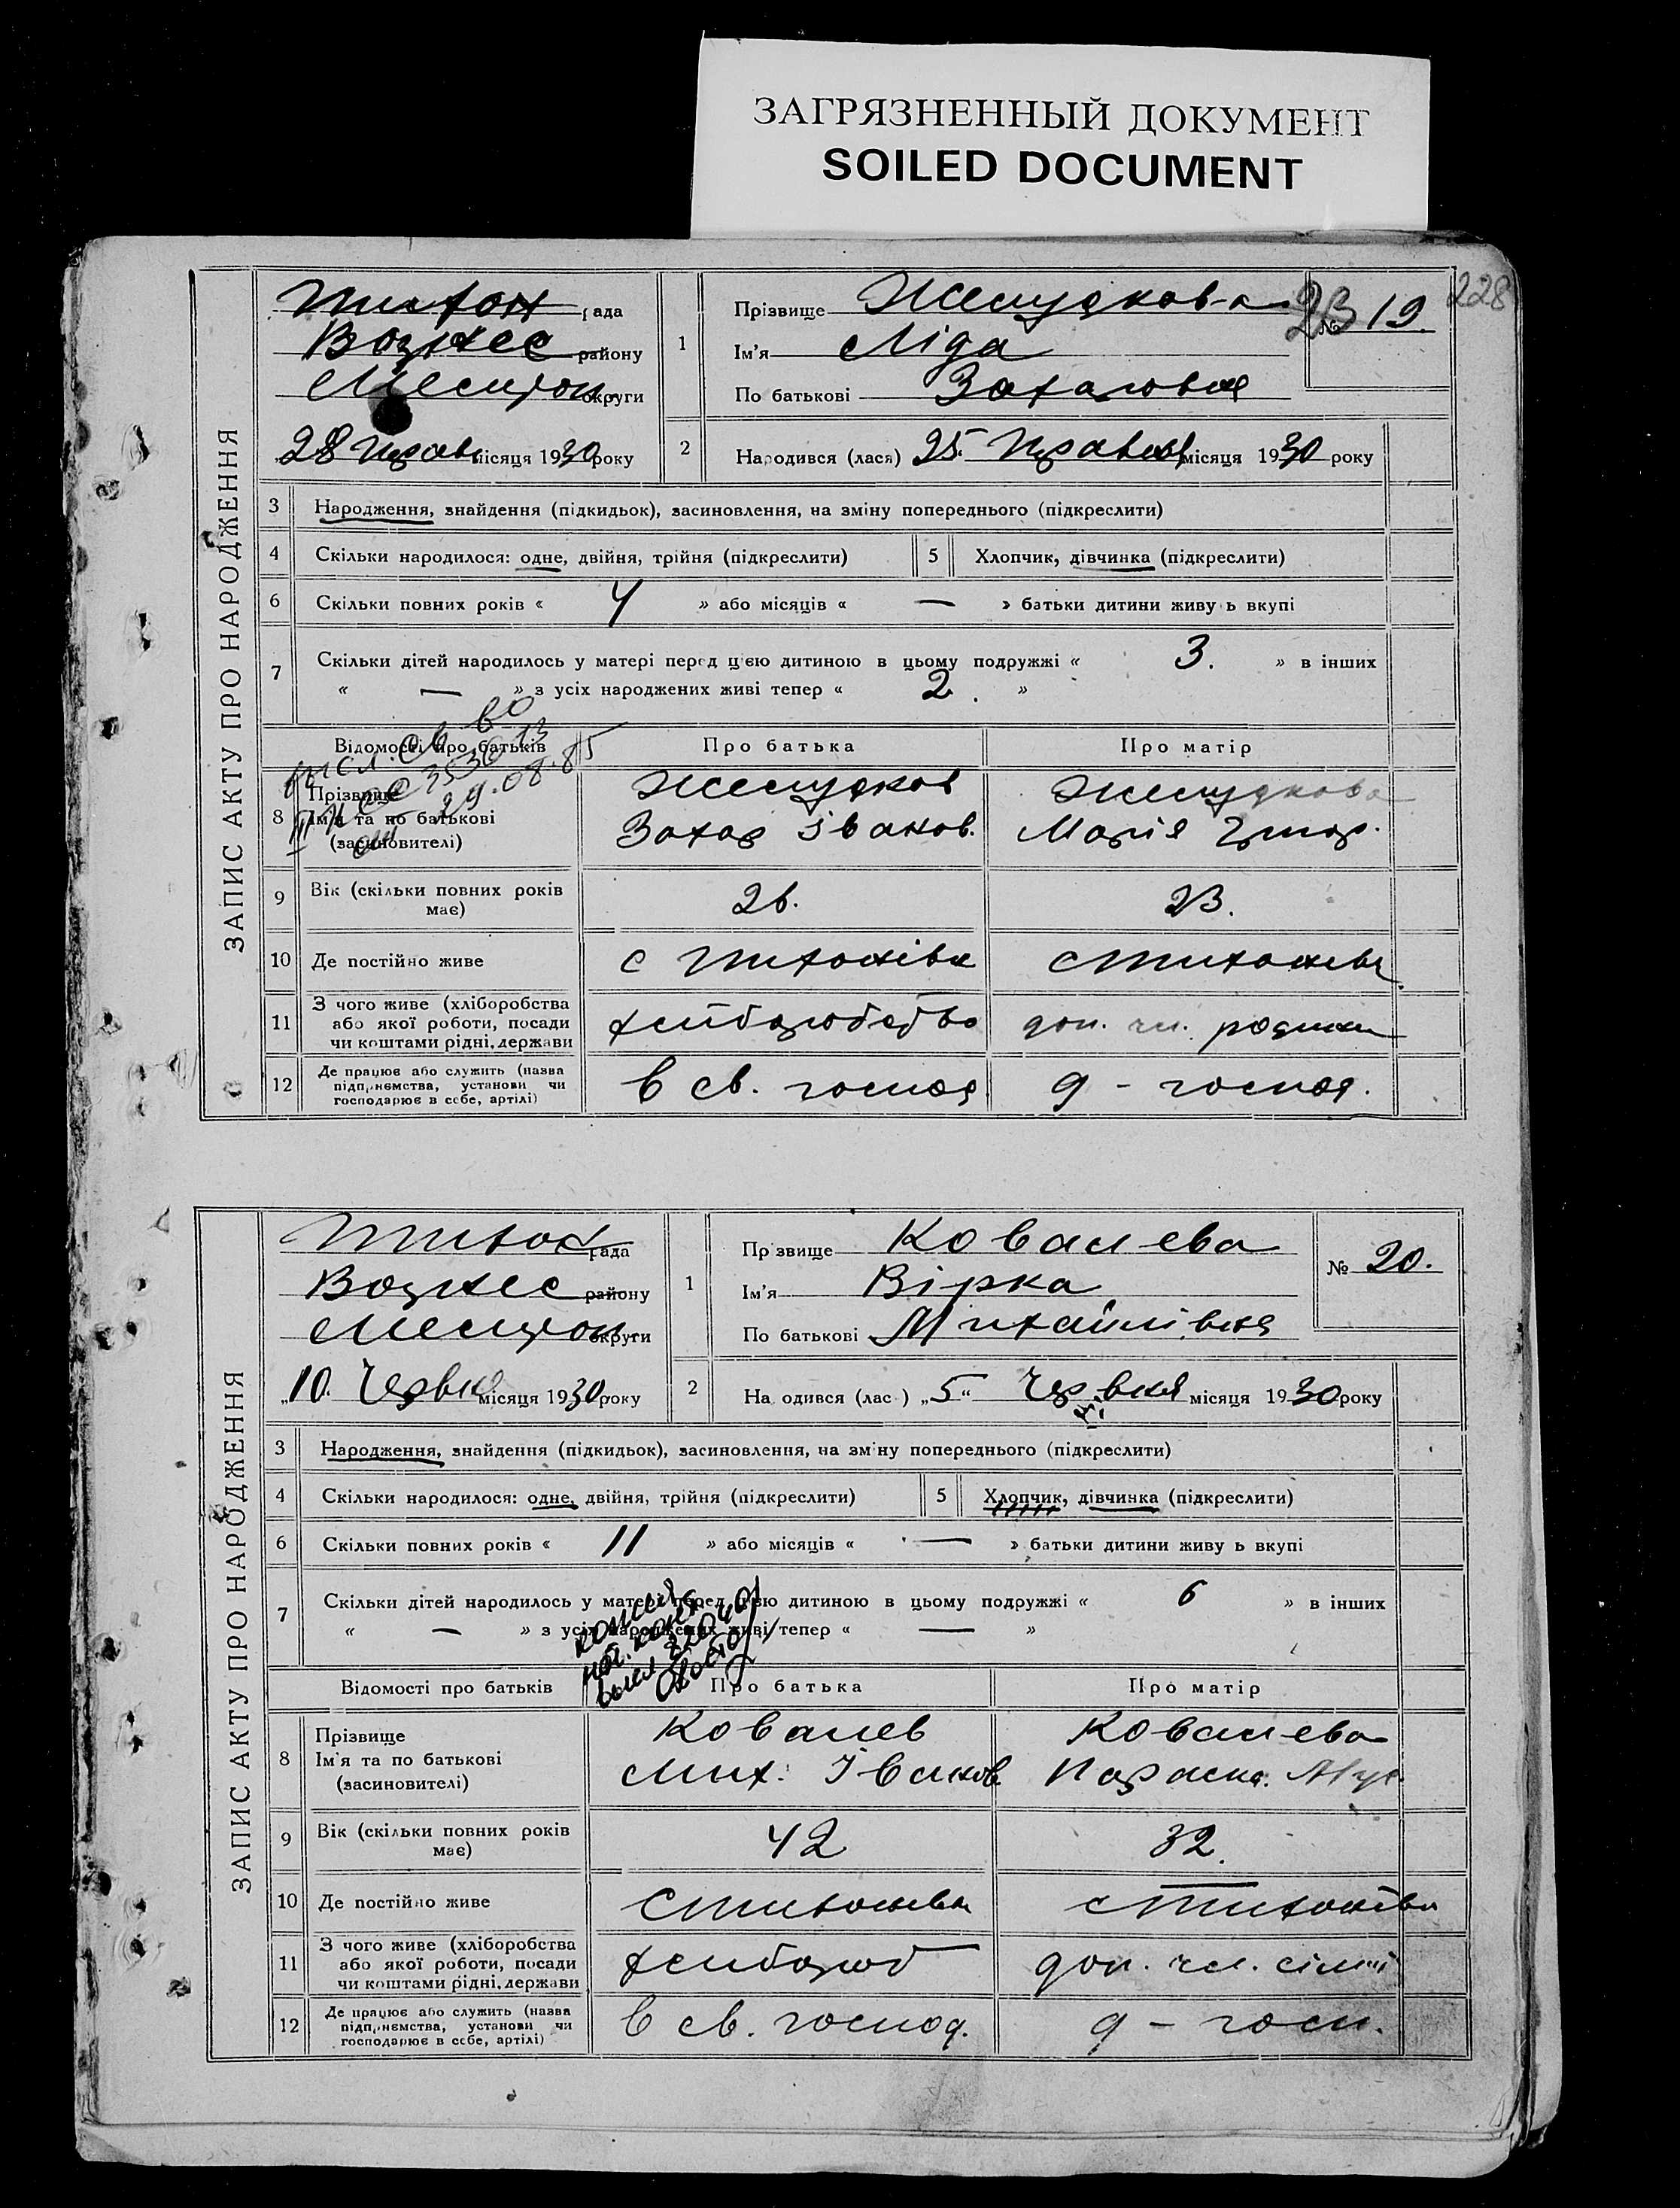 ЗАГРЯЗНЕННЫЙ ДОКУМЕНТ
SOILED DOCUMENT
228
ЗАПИС АКТУ ПРО НАРОДЖЕННЯ
Тихон рада
Вознес району
округи
28 Трав місяця 1930 року
1
Прізвище Желудкова
Ім'я Ліда
По батькові Захаровна
23
№ 19.
2
Народився (лася) 25. Травня місяця 1930 року
3 Народження, знайдення (підкидьок), засиновлення, на зміну попереднього (підкреслити)
4 Скільки народилося: одне, двійня, трійня (підкреслити) 5 Хлопчик, дівчинка (підкреслити)
6 Скільки повних років « 4 » або місяців « — » батьки дитини живу ь вкупі
7 Скільки дітей народилось у матері перед цією дитиною в цьому подружжі « 3. » в інших
« — » з усіх народжених живі тепер « 2. »
29.08.85
Відомості про батьків Про батька Про матір
8 Прізвище
Ім'я та по батькові
(засиновителі)
Желудков
Захар Іванов.
Желудкова
Марія Григор.
9 Вік (скільки повних років
має)
26. 23.
10 Де постійно живе с Тихонівка с Тихонівка
11 З чого живе (хліборобства
або якої роботи, посади
чи коштами рідні, держави
хліборобство доп. чл. родини
12 Де працює або служить (назва
підприємства, установи чи
господарює в себе, артілі)
в св. господ д - господ.
ЗАПИС АКТУ ПРО НАРОДЖЕННЯ
Тихон рада
Вознес району
округи
„10. Червня місяця 1930 року
1
Пр звище Ковалева
Ім'я Вірка
По батькові Михайлівна
№ 20.
2
На одився (лас ) „5“ Червня місяця 1930 року
3 Народження, знайдення (підкидьок), засиновлення, на зміну попереднього (підкреслити)
4 Скільки народилося: одне, двійня, трійня (підкреслити) 5 Хлопчик, дівчинка (підкреслити)
6 Скільки повних років « 11 » або місяців « — » батьки дитини живу ь вкупі
7 Скільки дітей народилось у матері перед цією дитиною в цьому подружжі « 6 » в інших
« — » з усіх народжених живі тепер « — »
Відомості про батьків Про батька Про матір
8 Прізвище
Ім'я та по батькові
(засиновителі)
Ковалев
Мих. Іванов.
Ковалева
Параска.
9 Вік (скільки повних років
має)
42 32.
10 Де постійно живе с Тихонівка с Тихонівка
11 З чого живе (хліборобства
або якої роботи, посади
чи коштами рідні, держави
хлібороб доп. чл. сімї
12 Де працює або служить (назва
підприємства, установи чи
господарює в себе, артілі)
в св. господ. д - госп.